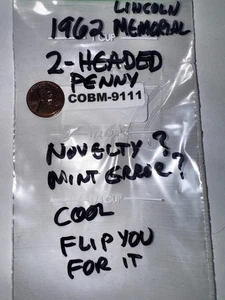 LINCOLN
1962 MEMORIAL
1 CUP
2-HEADED
PENNY
COBM-9111
NOVELTY?
MINT ERROR?
COOL
FLIP YOU
FOR IT